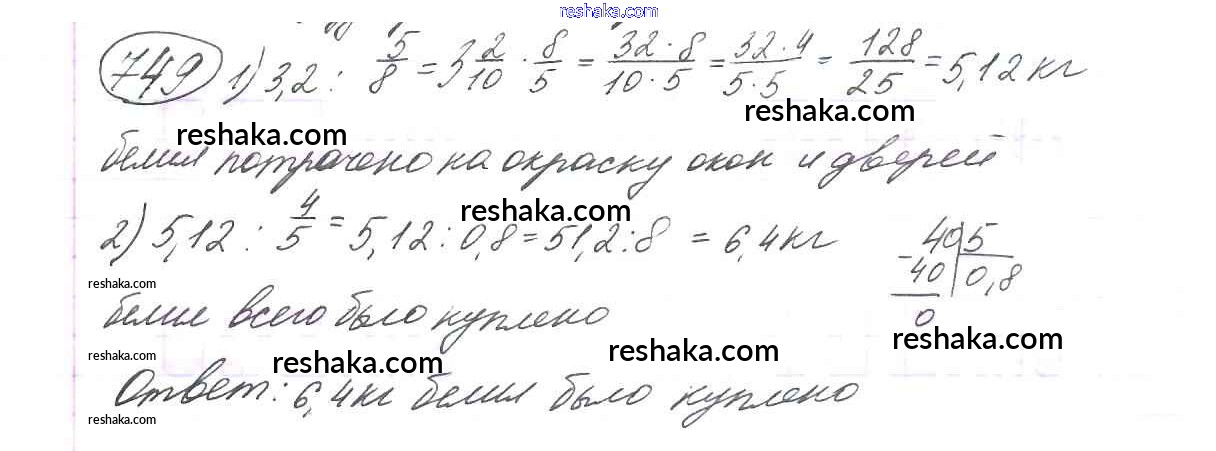 reshaka.com
749 1) 3,2 : 5/8 = 3 2/10 · 8/5 = 32·8/10·5 = 32·4/5·5 = 128/25 = 5,12 кг
reshaka.com
reshaka.com
белил потрачено на окраску окон и дверей
reshaka.com
2) 5,12 : 4/5 = 5,12 : 0,8 = 51,2 : 8 = 6,4 кг
40 5
- 40 0,8
0
reshaka.com
белил всего было куплено
reshaka.com
reshaka.com
reshaka.com
reshaka.com
Ответ: 6,4 кг белил было куплено
reshaka.com